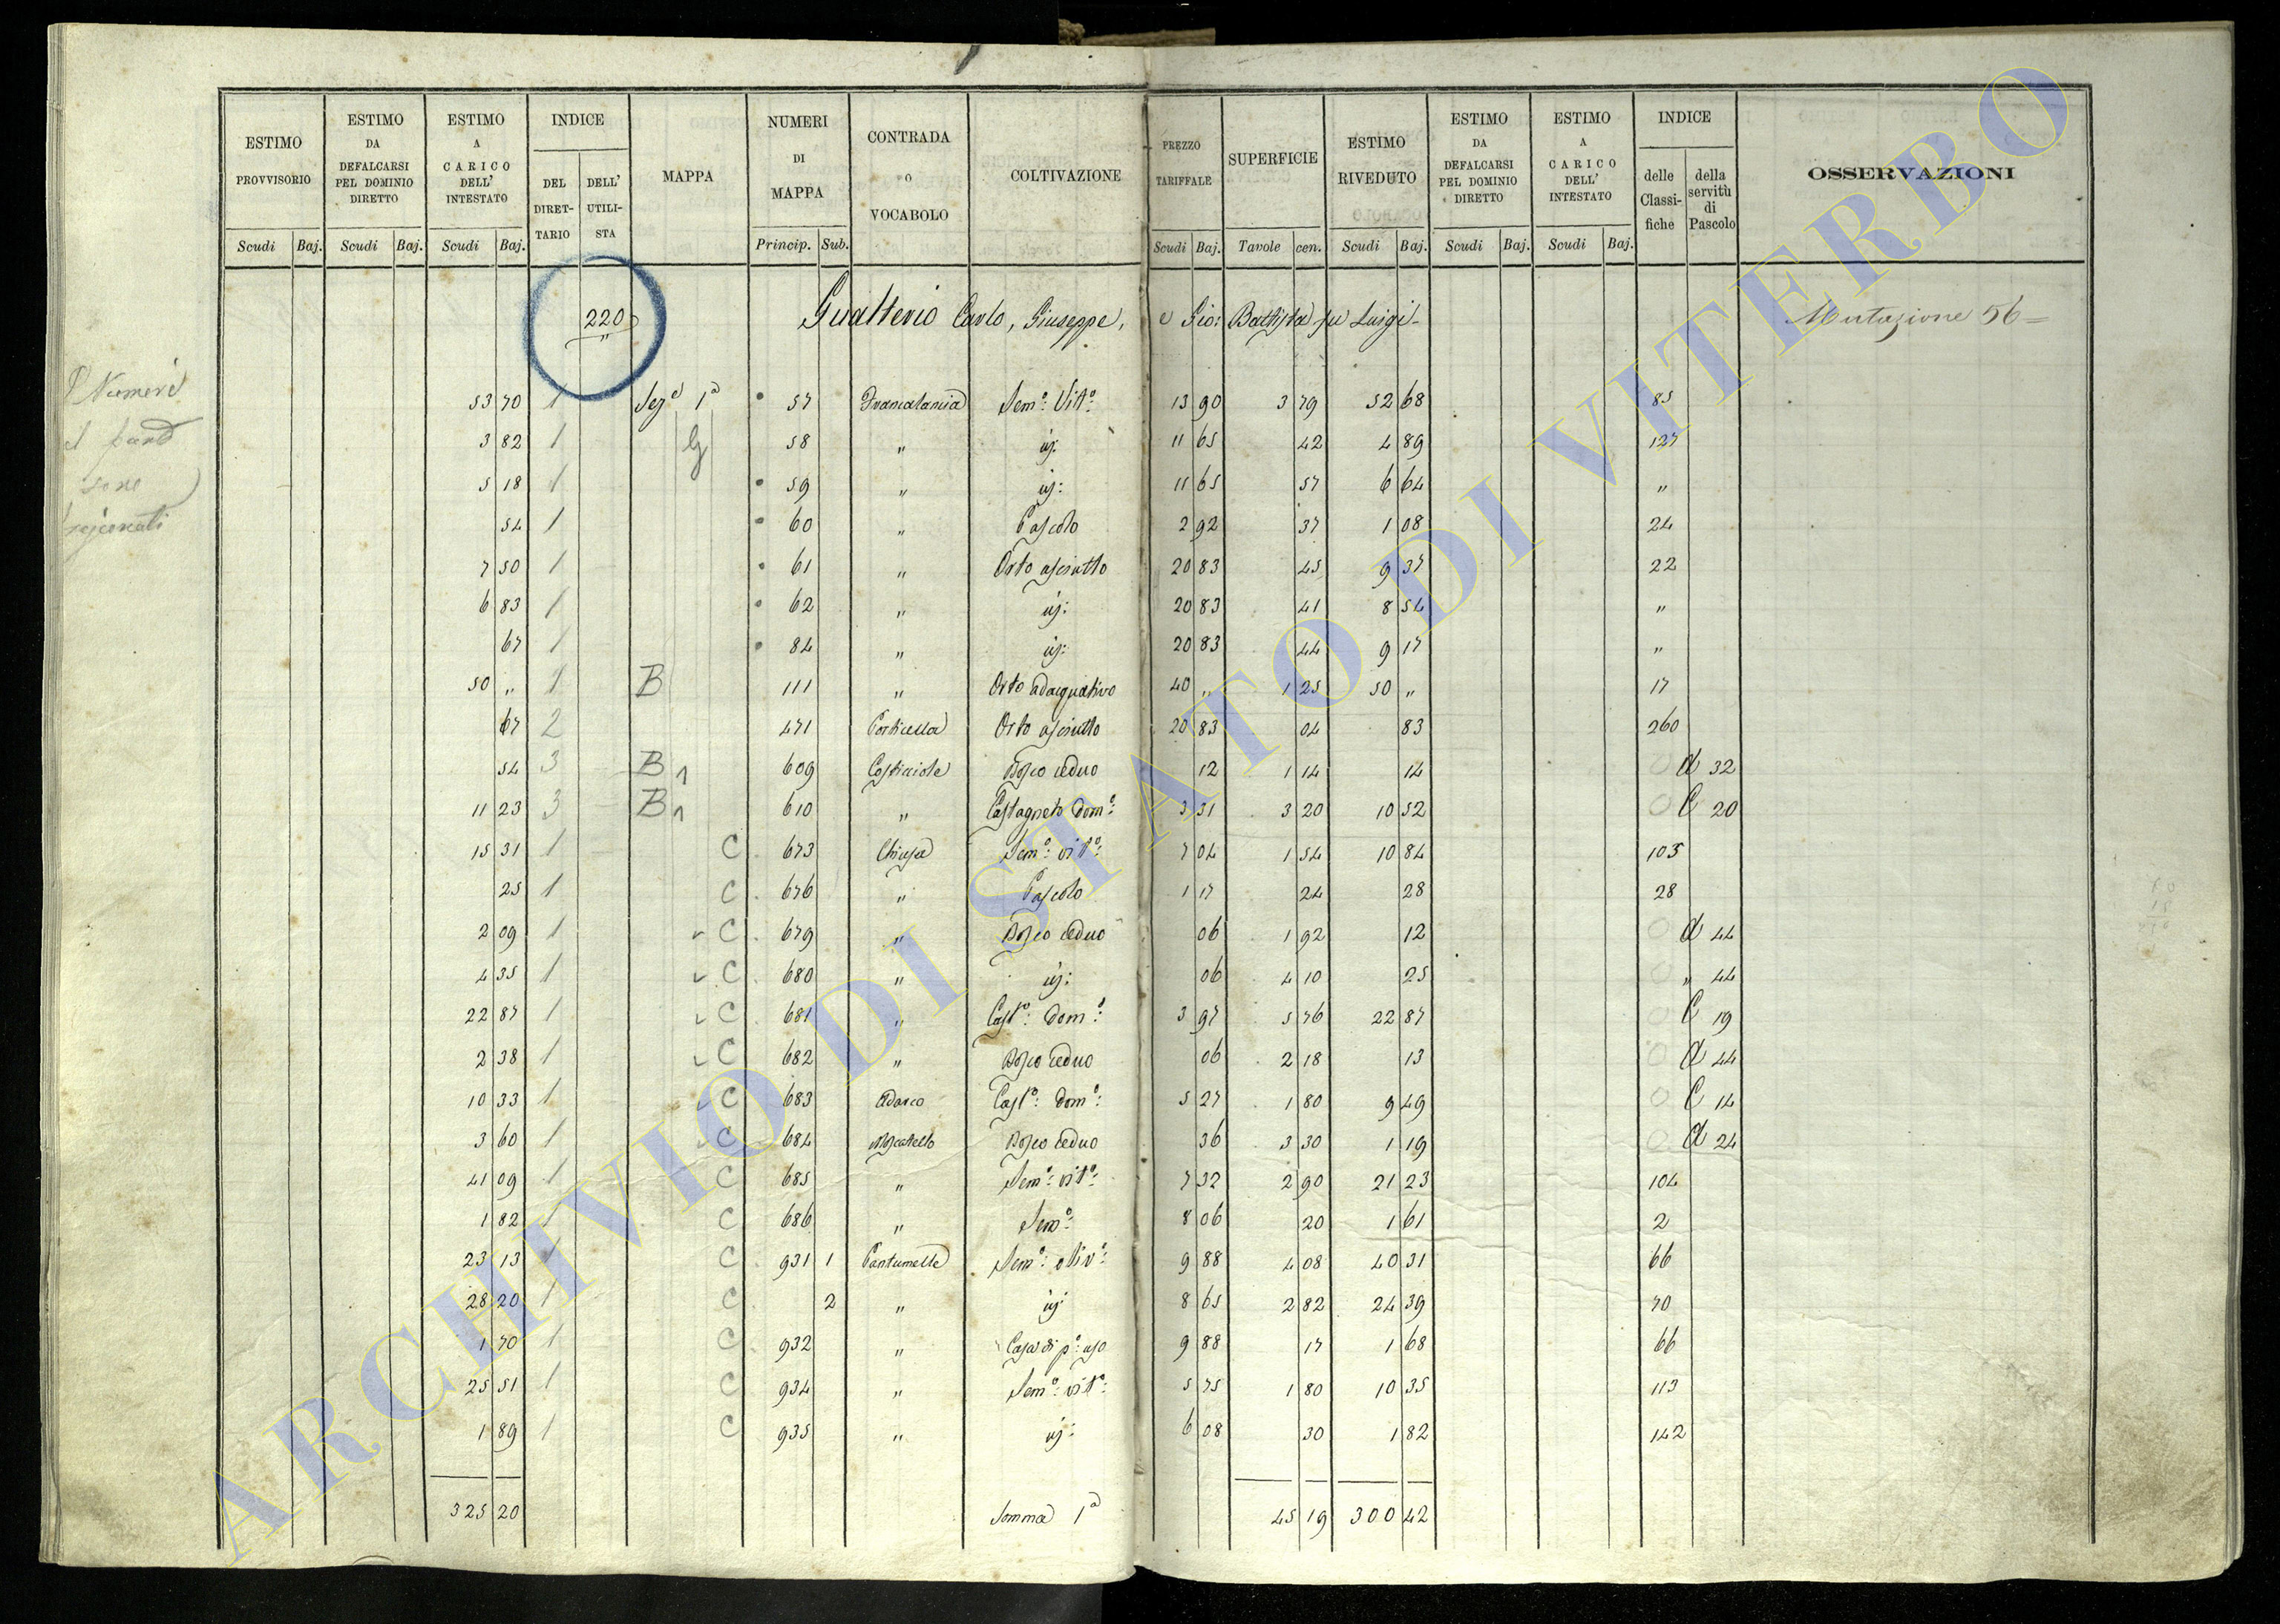 ESTIMO PROVVISORIO | ESTIMO DA DEFALCARSI PEL DOMINIO DIRETTO | ESTIMO A CARICO DELL' INTESTATO | INDICE DEL DIRETTARIO | DELL' UTILISTA | MAPPA | NUMERI DI MAPPA | CONTRADA O VOCABOLO | COLTIVAZIONE | PREZZO TARIFFALE | SUPERFICIE | ESTIMO RIVEDUTO | ESTIMO DA DEFALCARSI PEL DOMINIO DIRETTO | ESTIMO A CARICO DELL' INTESTATO | INDICE delle Classifiche | della servitù di Pascolo | OSSERVAZIONI
Scudi Baj. Scudi Baj. Scudi Baj. Princip. Sub. Scudi Baj. Tavole cen. Scudi Baj. Scudi Baj. Scudi Baj.
220 Gualterio Carlo, Giuseppe, e Gio: Battista fu Luigi Mutazione 56
53 70 1 Sez.e 1a 57 Sem.o Vit.o 13 90 3 79 52 68 85
3 82 1 G 58 " id: 11 65 42 4 89 127
5 18 1 59 " id: 11 65 57 6 64 "
54 1 60 " Pascolo 2 92 37 1 08 24
7 50 1 61 " Orto asciutto 20 83 45 9 37 22
6 83 1 62 " id: 20 83 41 8 54 "
67 1 84 " id: 20 83 44 9 17 "
50 " 1 B 111 " Orto adacquativo 40 " 1 25 50 " 17
67 2 471 Porticella Orto asciutto 20 83 04 83 260
54 3 B 1 609 Bosco ceduo 12 1 14 14 0 d 32
11 23 3 B 1 610 " Castagneto dom.o 3 31 3 20 10 52 0 C 20
15 31 1 C 673 Chiusa Sem.o vit.o 7 04 1 54 10 84 103
25 1 C 676 " Pascolo 1 17 24 28 28
2 09 1 C 679 " Bosco ceduo 06 1 92 12 0 d 44
4 35 1 C 680 " id: 06 4 10 25 0 " 44
22 87 1 C 681 " Cast.o dom.o 3 97 5 76 22 87 0 C 19
2 38 1 C 682 " Bosco ceduo 06 2 18 13 0 d 44
10 33 1 C 683 Cast.o dom.o 5 27 1 80 9 49 0 C 14
3 60 1 C 684 Moscatello Bosco ceduo 36 3 30 1 19 0 d 24
41 09 1 C 685 " Sem.o vit.o 7 32 2 90 21 23 104
1 82 1 C 686 " Sem.o 8 06 20 1 61 2
23 13 1 C 931 1 Pantumelle Sem.o oliv.o 9 88 4 08 40 31 66
28 20 1 C 2 " id: 8 65 2 82 24 39 70
1 70 1 C 932 " Casa di p.o uso 9 88 17 1 68 66
25 51 1 C 934 " Sem.o vit.o 5 75 1 80 10 35 113
1 89 1 C 935 " id: 6 08 30 1 82 142
325 20 Somma 1a 45 19 300 42
I Numeri
sono
ARCHIVIO DI STATO DI VITERBO